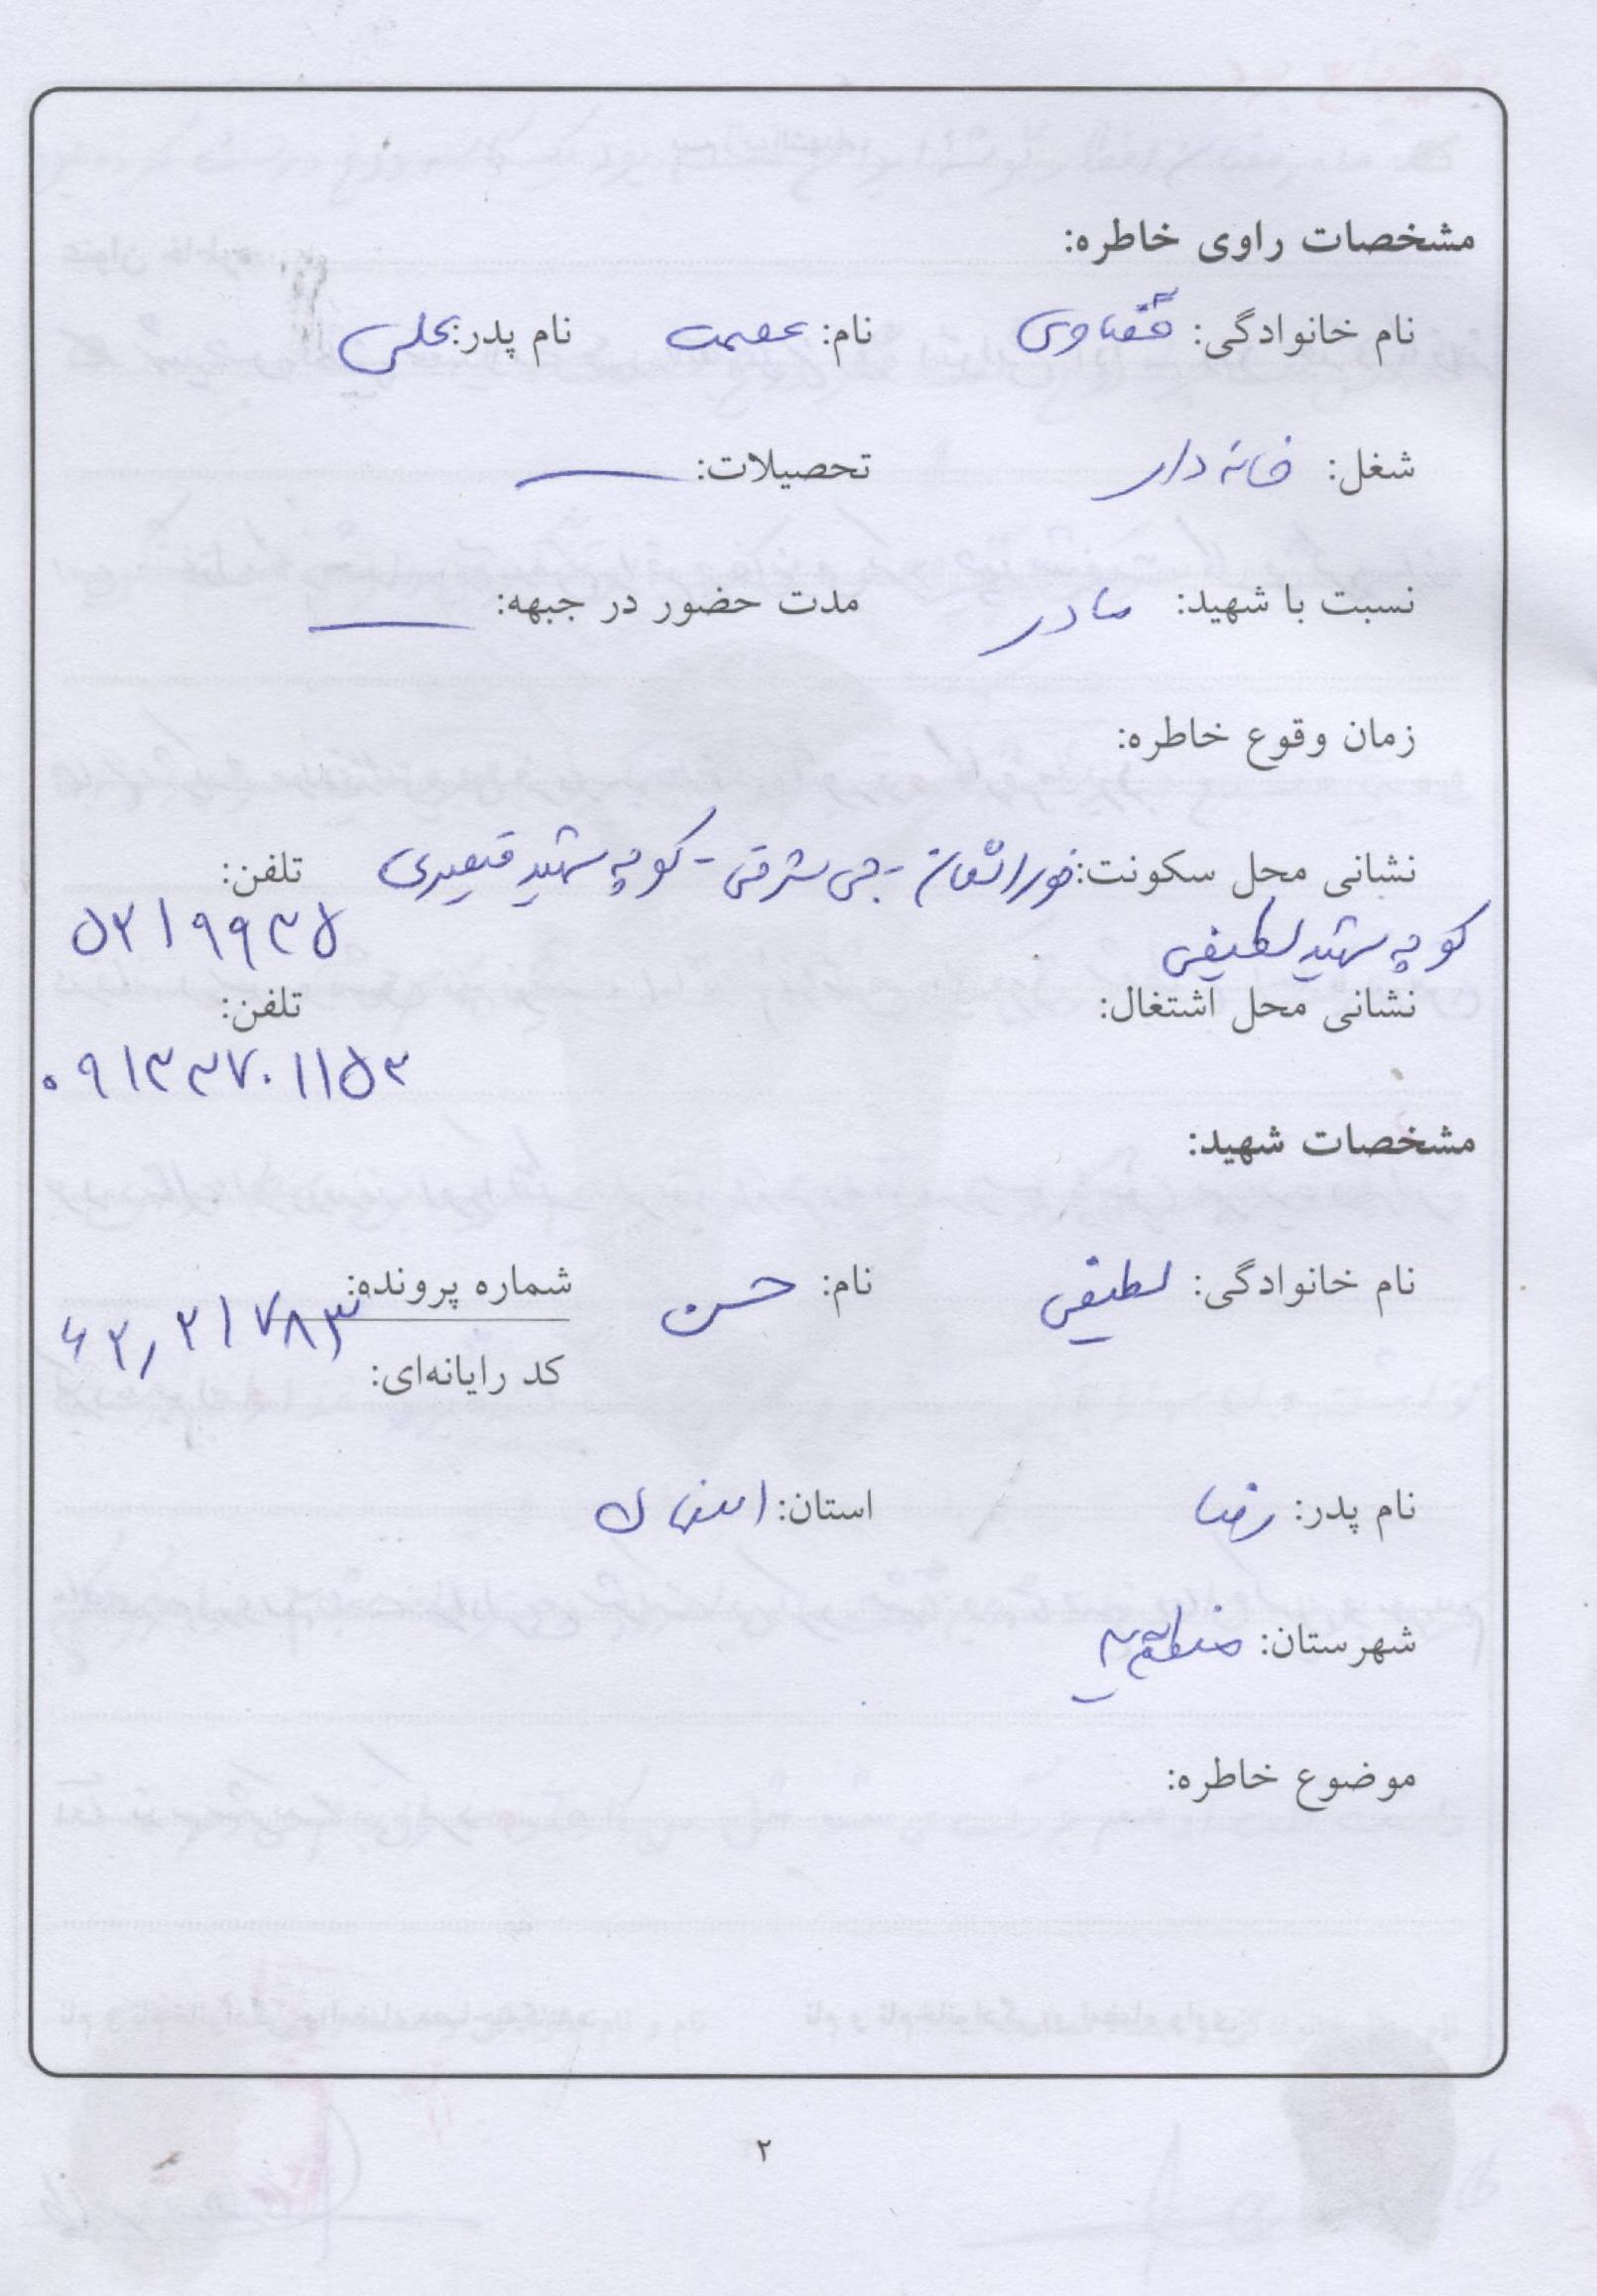 مشخصات راوی خاطره:
نام خانوادگی: قضاوی نام: عصمت نام پدر: علی
شغل: خانه دار تحصیلات: ــــ
نسبت با شهید: مادر مدت حضور در جبهه: ــــ
زمان وقوع خاطره:
نشانی محل سکونت: خوراسگان - جی شرقی - کوچه شهید قیصری تلفن:
کوچه شهید لطیفی ۵۲۱۹۹۳۵
نشانی محل اشتغال: تلفن:
۰۹۱۳۳۷۰۱۱۵۳
مشخصات شهید:
نام خانوادگی: لطیفی نام: حسن شماره پرونده:
۶۲٫۲۱۷۸۳
کد رایانه‌ای:
نام پدر: رضا استان: اصفهان
شهرستان: منطقه
موضوع خاطره:
۲